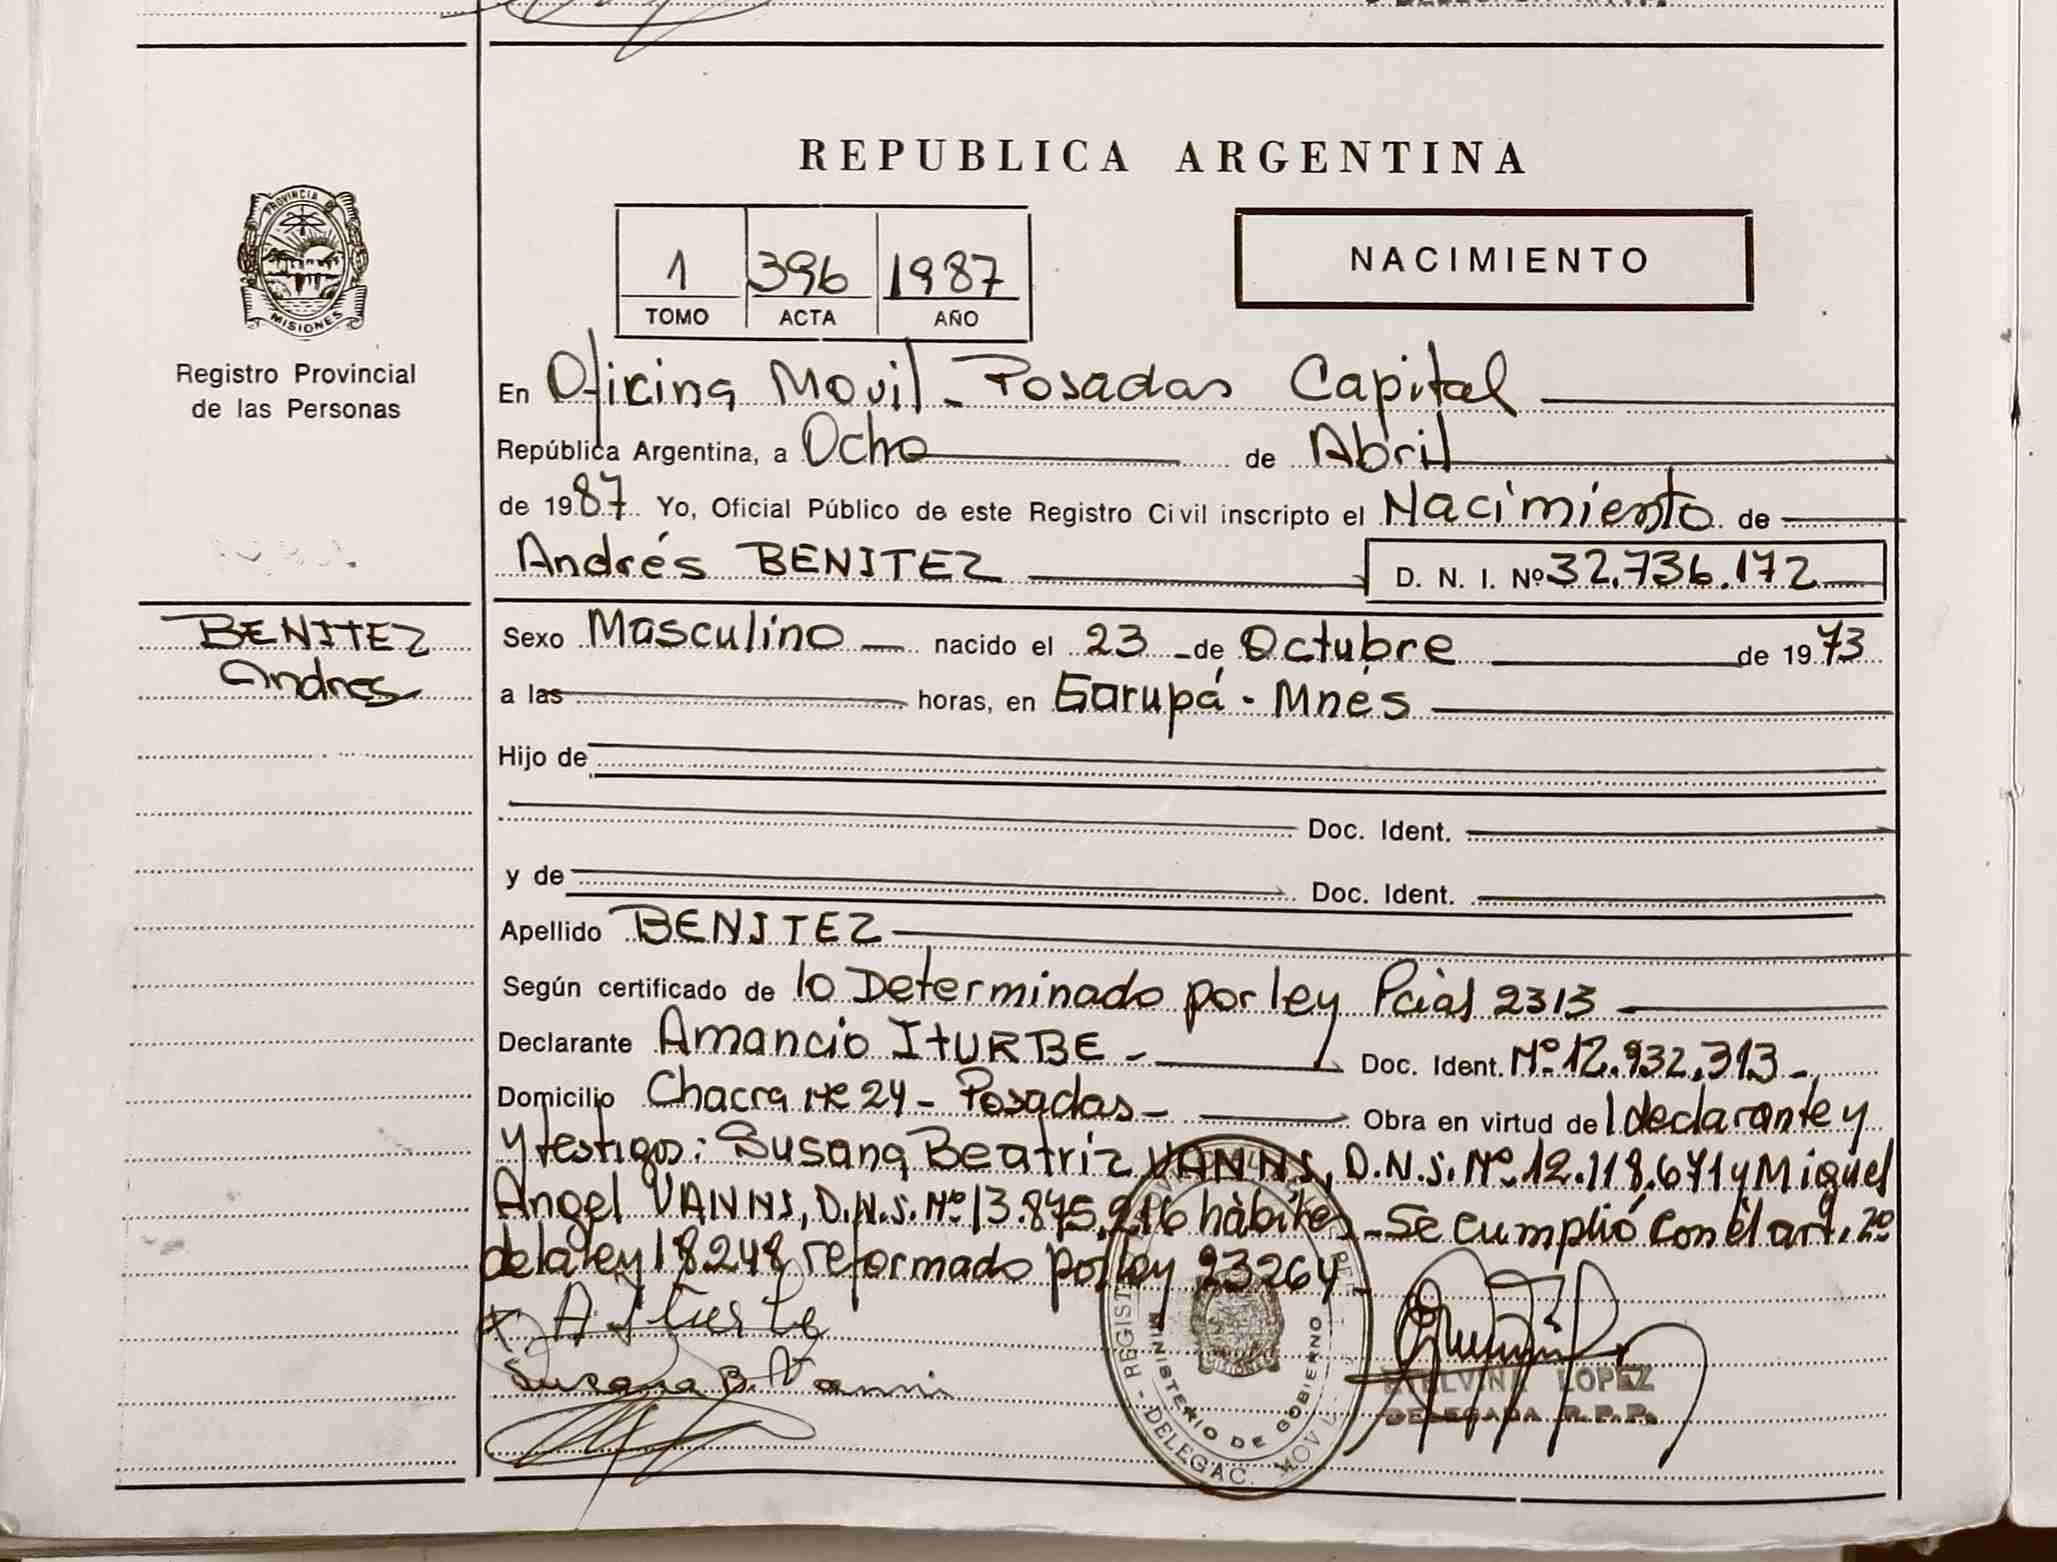 REPUBLICA ARGENTINA
PROVINCIA DE
MISIONES
Registro Provincial
de las Personas
1 396 1987
TOMO ACTA AÑO
NACIMIENTO
En Oficina Movil - Posadas Capital
República Argentina, a Ocho de Abril
de 1987 Yo, Oficial Público de este Registro Civil inscripto el Nacimiento de
Andrés BENITEZ D. N. I. Nº 32.736.172
BENITEZ
Andres
Sexo Masculino nacido el 23 - de Octubre de 1973
a las horas, en Garupá - Mnes
Hijo de
Doc. Ident.
y de Doc. Ident.
Apellido BENITEZ
Según certificado de lo Determinado por ley Pcial 2313
Declarante Amancio ITURBE - Doc. Ident. Nº 12.932.313 -
Domicilio Chacra Nº 24 - Posadas - Obra en virtud de l declarante y
y testigos: Susana Beatriz VANNI, D.N.I. Nº 12.118.671 y Miguel
Angel VANNI, D.N.I. Nº 13.875.216 hábiles - Se cumplió con el art. 2º
de la ley 18248 reformado por ley 23264
A. Iturbe
Susana B. Vanni
MINISTERIO DE GOBIERNO
DELEGAC. MOVIL
LOPEZ
DELEGADA R.P.P.